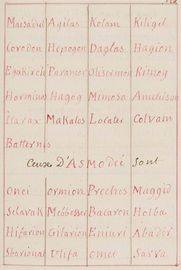 Maisadul Agilas Kolam Kiligil
Corodon Hepogon Daglas Hagion
Egakireh Paramor Olisermon Rimog
Horminus Hagog Mimosa Amchison
Ilarax Makalos Locater Colvam
Batternis
Ceux D'ASMODÉE Sont
Onei ormion Preches Maggid
Sclavak Mebbesser Bacaron Holba
Hifarion Gilarion Eniuri Abadir
Sbarionat Utifa omet Sarra